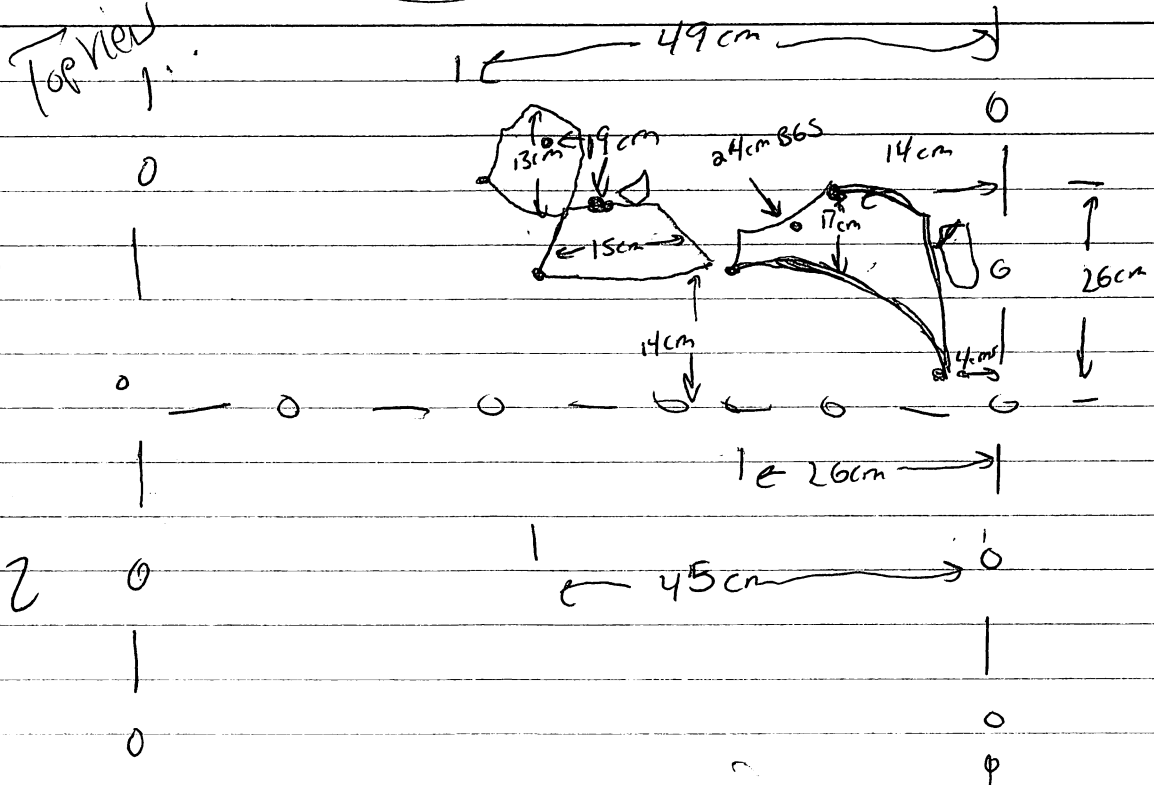 Top view
49 cm
13cm
19 cm
24cm BGS
14 cm
17cm
15cm
26cm
14cm
4cms
26cm
45 cm
2